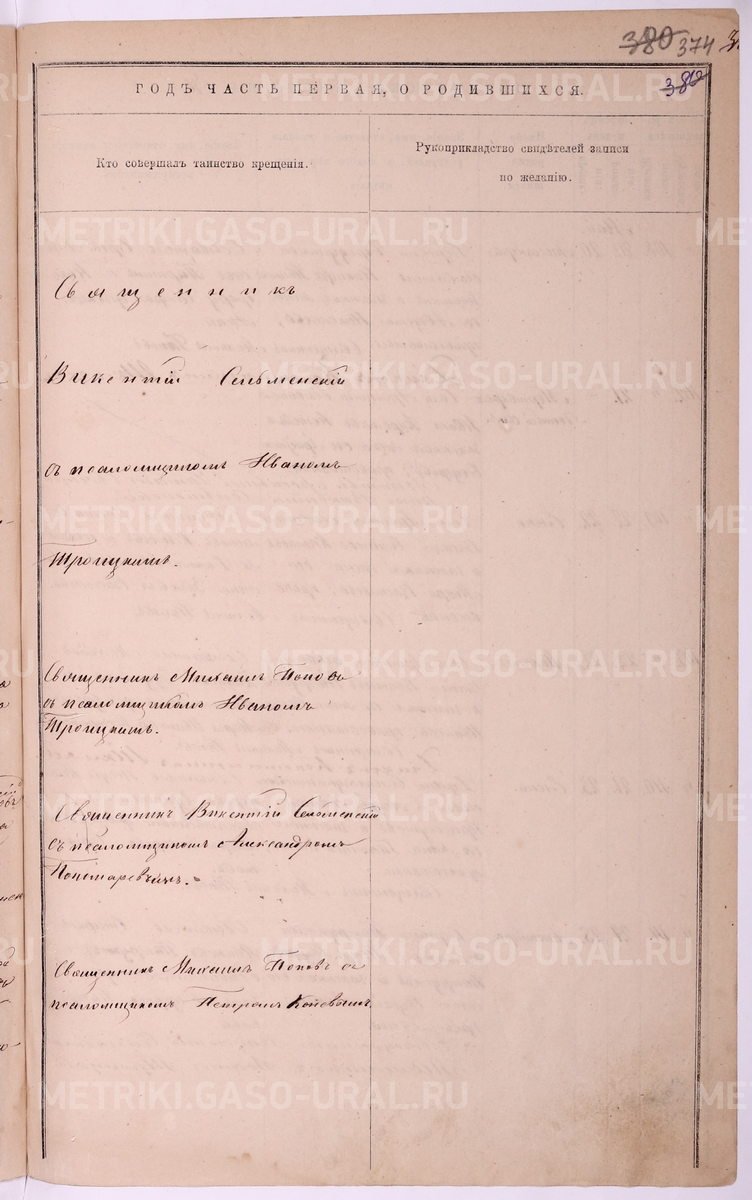 380 374
382
ГОДЪ ЧАСТЬ ПЕРВАЯ, О РОДИВШИХСЯ.
Кто совершалъ таинство крещенія.
Рукоприкладство свидѣтелей записи
по желанію.
Священникъ
Викентій Сельменскій
съ псаломщикомъ Иваномъ
Троицкимъ.
Священникъ Михаилъ Поповъ
съ псаломщикомъ Иваномъ
Троицкимъ.
Священникъ Викентій Сельменскій
съ псаломщикомъ Александромъ
Пономаревымъ.
Священникъ Михаилъ Поповъ съ
псаломщикомъ Петромъ
METRIKI.GASO-URAL.RU